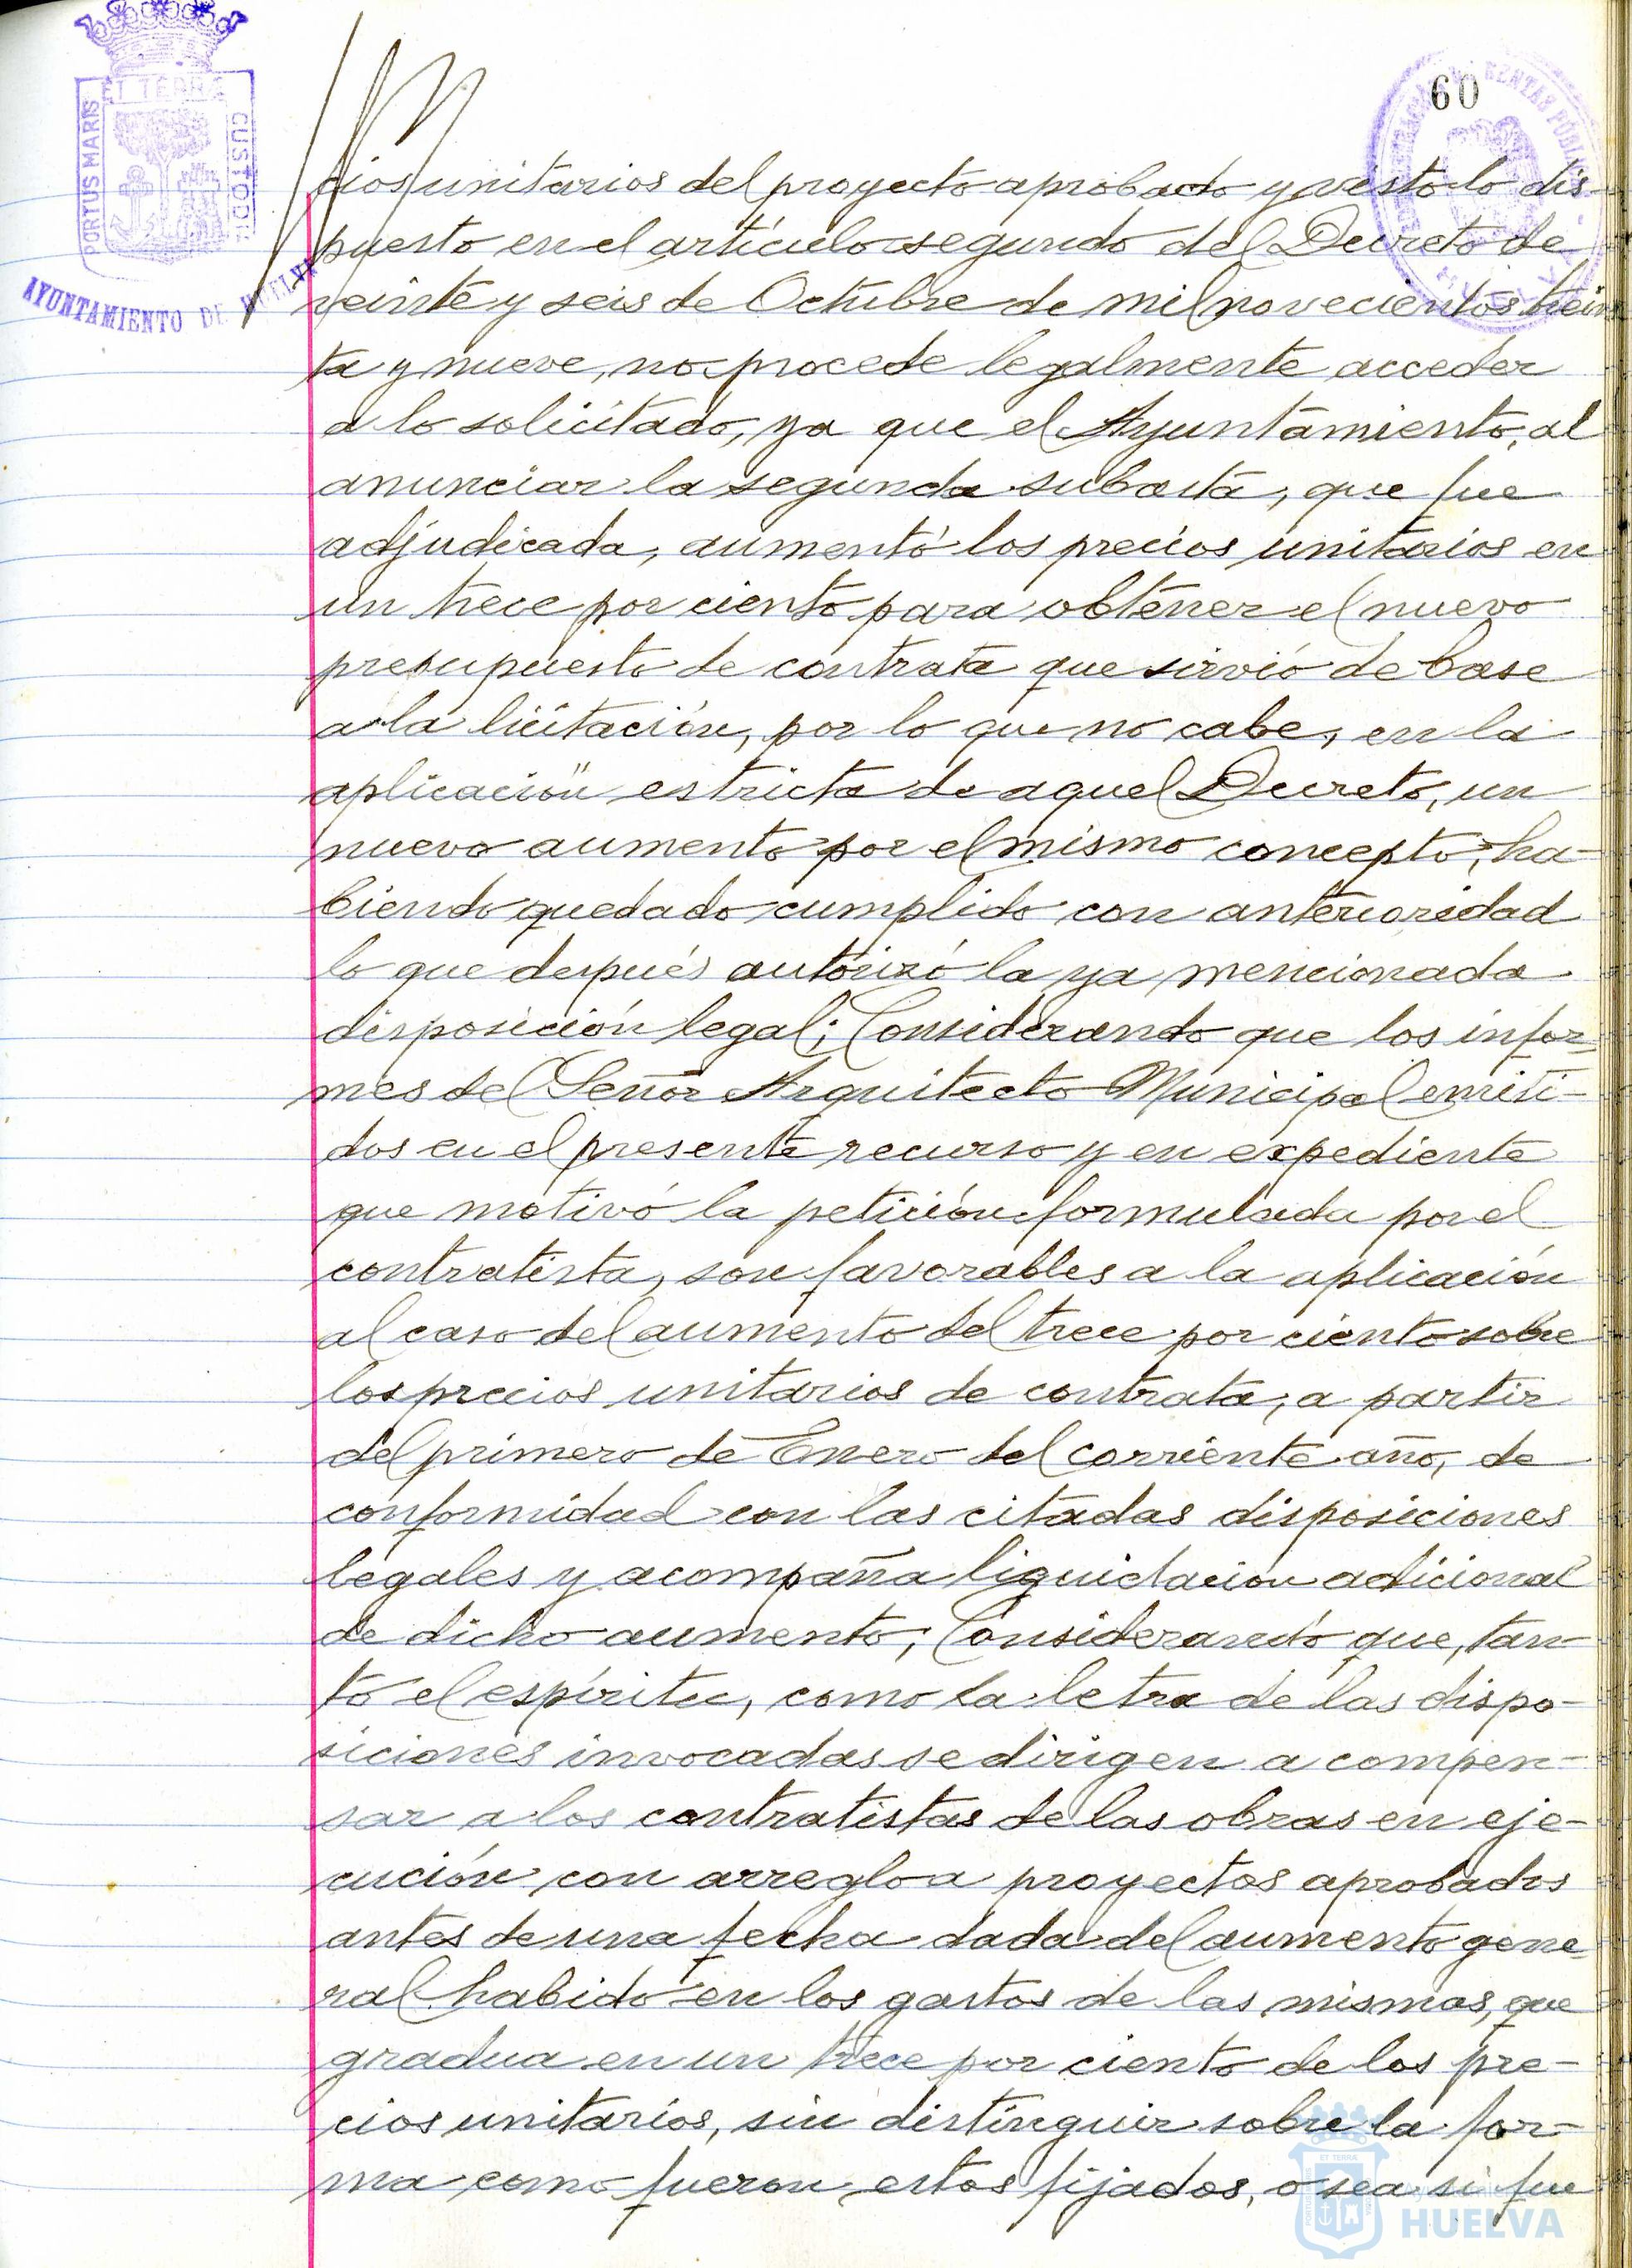 60
ET TERRÆ
PORTUS MARIS
CUSTODIA
AYUNTAMIENTO DE HUELVA
cios unitarios del proyecto aprobado y visto lo dis-
puesto en el artículo segundo del Decreto de
veinte y seis de Octubre de mil novecientos trein
ta y nueve, no procede legalmente acceder
a lo solicitado, ya que el Ayuntamiento, al
anunciar la segunda subasta, que fue
adjudicada, aumentó los precios unitarios en
un trece por ciento para obtener el nuevo
presupuesto de contrata que sirvió de base
a la licitación, por lo que no cabe, en la
aplicación estricta de aquel Decreto, un
nuevo aumento por el mismo concepto, ha-
biendo quedado cumplido con anterioridad
lo que después autorizó la ya mencionada
disposición legal; Considerando que los infor-
mes del Señor Arquitecto Municipal emiti-
dos en el presente recurso y en expediente
que motivó la petición formulada por el
contratista, son favorables a la aplicación
al caso del aumento del trece por ciento sobre
los precios unitarios de contrata, a partir
del primero de Enero del corriente año, de
conformidad con las citadas disposiciones
legales y acompaña liquidación adicional
de dicho aumento; Considerando que, tan-
to el espíritu, como la letra de las dispo-
siciones invocadas se dirigen a compen-
sar a los contratistas de las obras en eje-
cución con arreglo a proyectos aprobados
antes de una fecha dada del aumento gene
ral habido en los gastos de las mismas, que
gradua en un trece por ciento de los pre-
cios unitarios, sin distinguir sobre la for-
ma como fueron estos fijados, o sea si fue
HUELVA